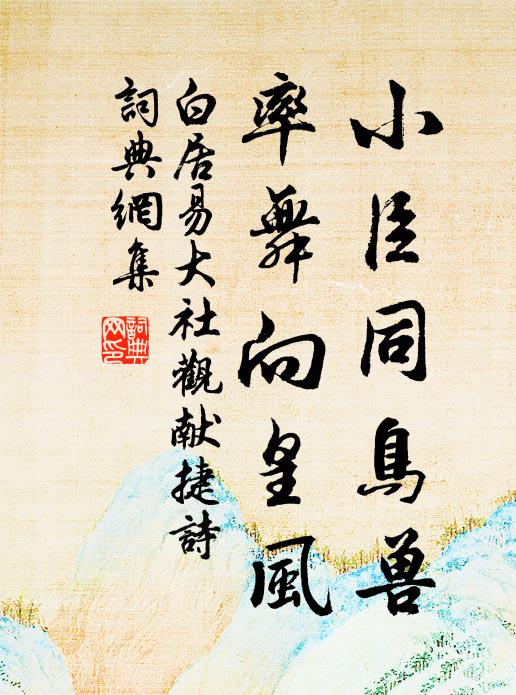 小臣同鳥獸
率舞向皇風
白居易大社觀献捷詩
詞典網集
詞典網印